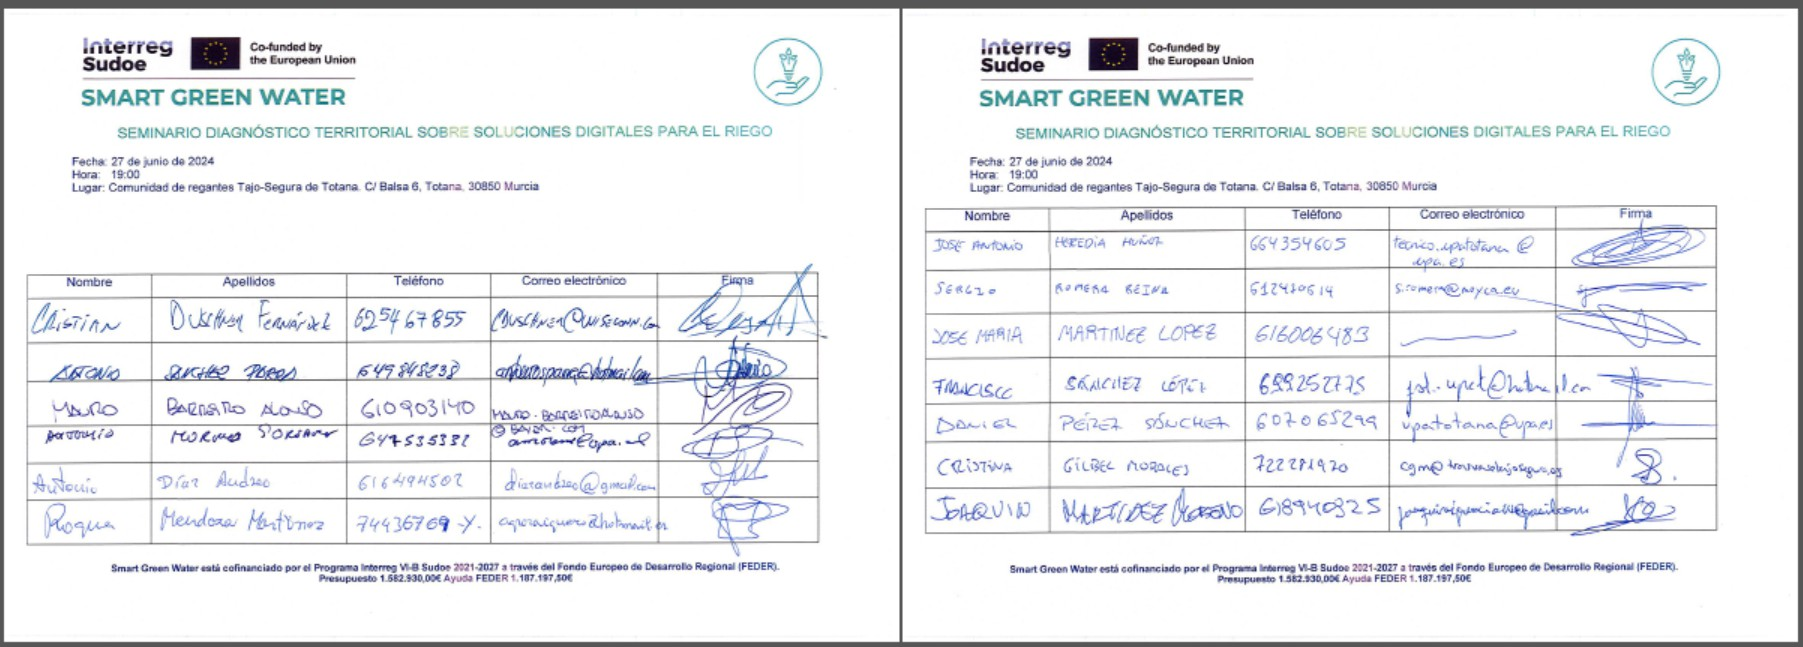 Interreg
Sudoe
Co-funded by
the European Union
SMART GREEN WATER
SEMINARIO DIAGNÓSTICO TERRITORIAL SOBRE SOLUCIONES DIGITALES PARA EL RIEGO
Fecha: 27 de junio de 2024
Hora: 19:00
Lugar: Comunidad de regantes Tajo-Segura de Totana. C/ Balsa 6, Totana, 30850 Murcia
Nombre Apellidos Teléfono Correo electrónico Firma
CRISTIAN DUSCHNER FERNÁNDEZ 625467855
ANTONIO SANCHEZ 649848238
MAURO BARREIRO ALONSO 610903140 MAURO.BARREIROALONSO
@ BAYER.COM
ANTONIO MORENO SORIANO 647535332
Antonio Díaz Andreo 616494502 diazandreo@gmail.com
Roque Mendoza Martínez 74436769-Y.
Smart Green Water está cofinanciado por el Programa Interreg VI-B Sudoe 2021-2027 a través del Fondo Europeo de Desarrollo Regional (FEDER).
Presupuesto 1.582.930,00€ Ayuda FEDER 1.187.197,50€
Interreg
Sudoe
Co-funded by
the European Union
SMART GREEN WATER
SEMINARIO DIAGNÓSTICO TERRITORIAL SOBRE SOLUCIONES DIGITALES PARA EL RIEGO
Fecha: 27 de junio de 2024
Hora: 19:00
Lugar: Comunidad de regantes Tajo-Segura de Totana. C/ Balsa 6, Totana, 30850 Murcia
Nombre Apellidos Teléfono Correo electrónico Firma
JOSE ANTONIO HEREDIA MUÑOZ 664354605 tecnico.upatotana @
upa.es
SERGIO ROMERA REINA 612410614
JOSE MARIA MARTINEZ LOPEZ 616006483
FRANCISCO SÁNCHEZ LÓPEZ 699252775
DANIEL PÉREZ SÁNCHEZ 607065299 upatotana@upa.es
CRISTINA GILBEL MORALES 722281920
JOAQUIN MARTINEZ MORENO 618940325
Smart Green Water está cofinanciado por el Programa Interreg VI-B Sudoe 2021-2027 a través del Fondo Europeo de Desarrollo Regional (FEDER).
Presupuesto 1.582.930,00€ Ayuda FEDER 1.187.197,50€